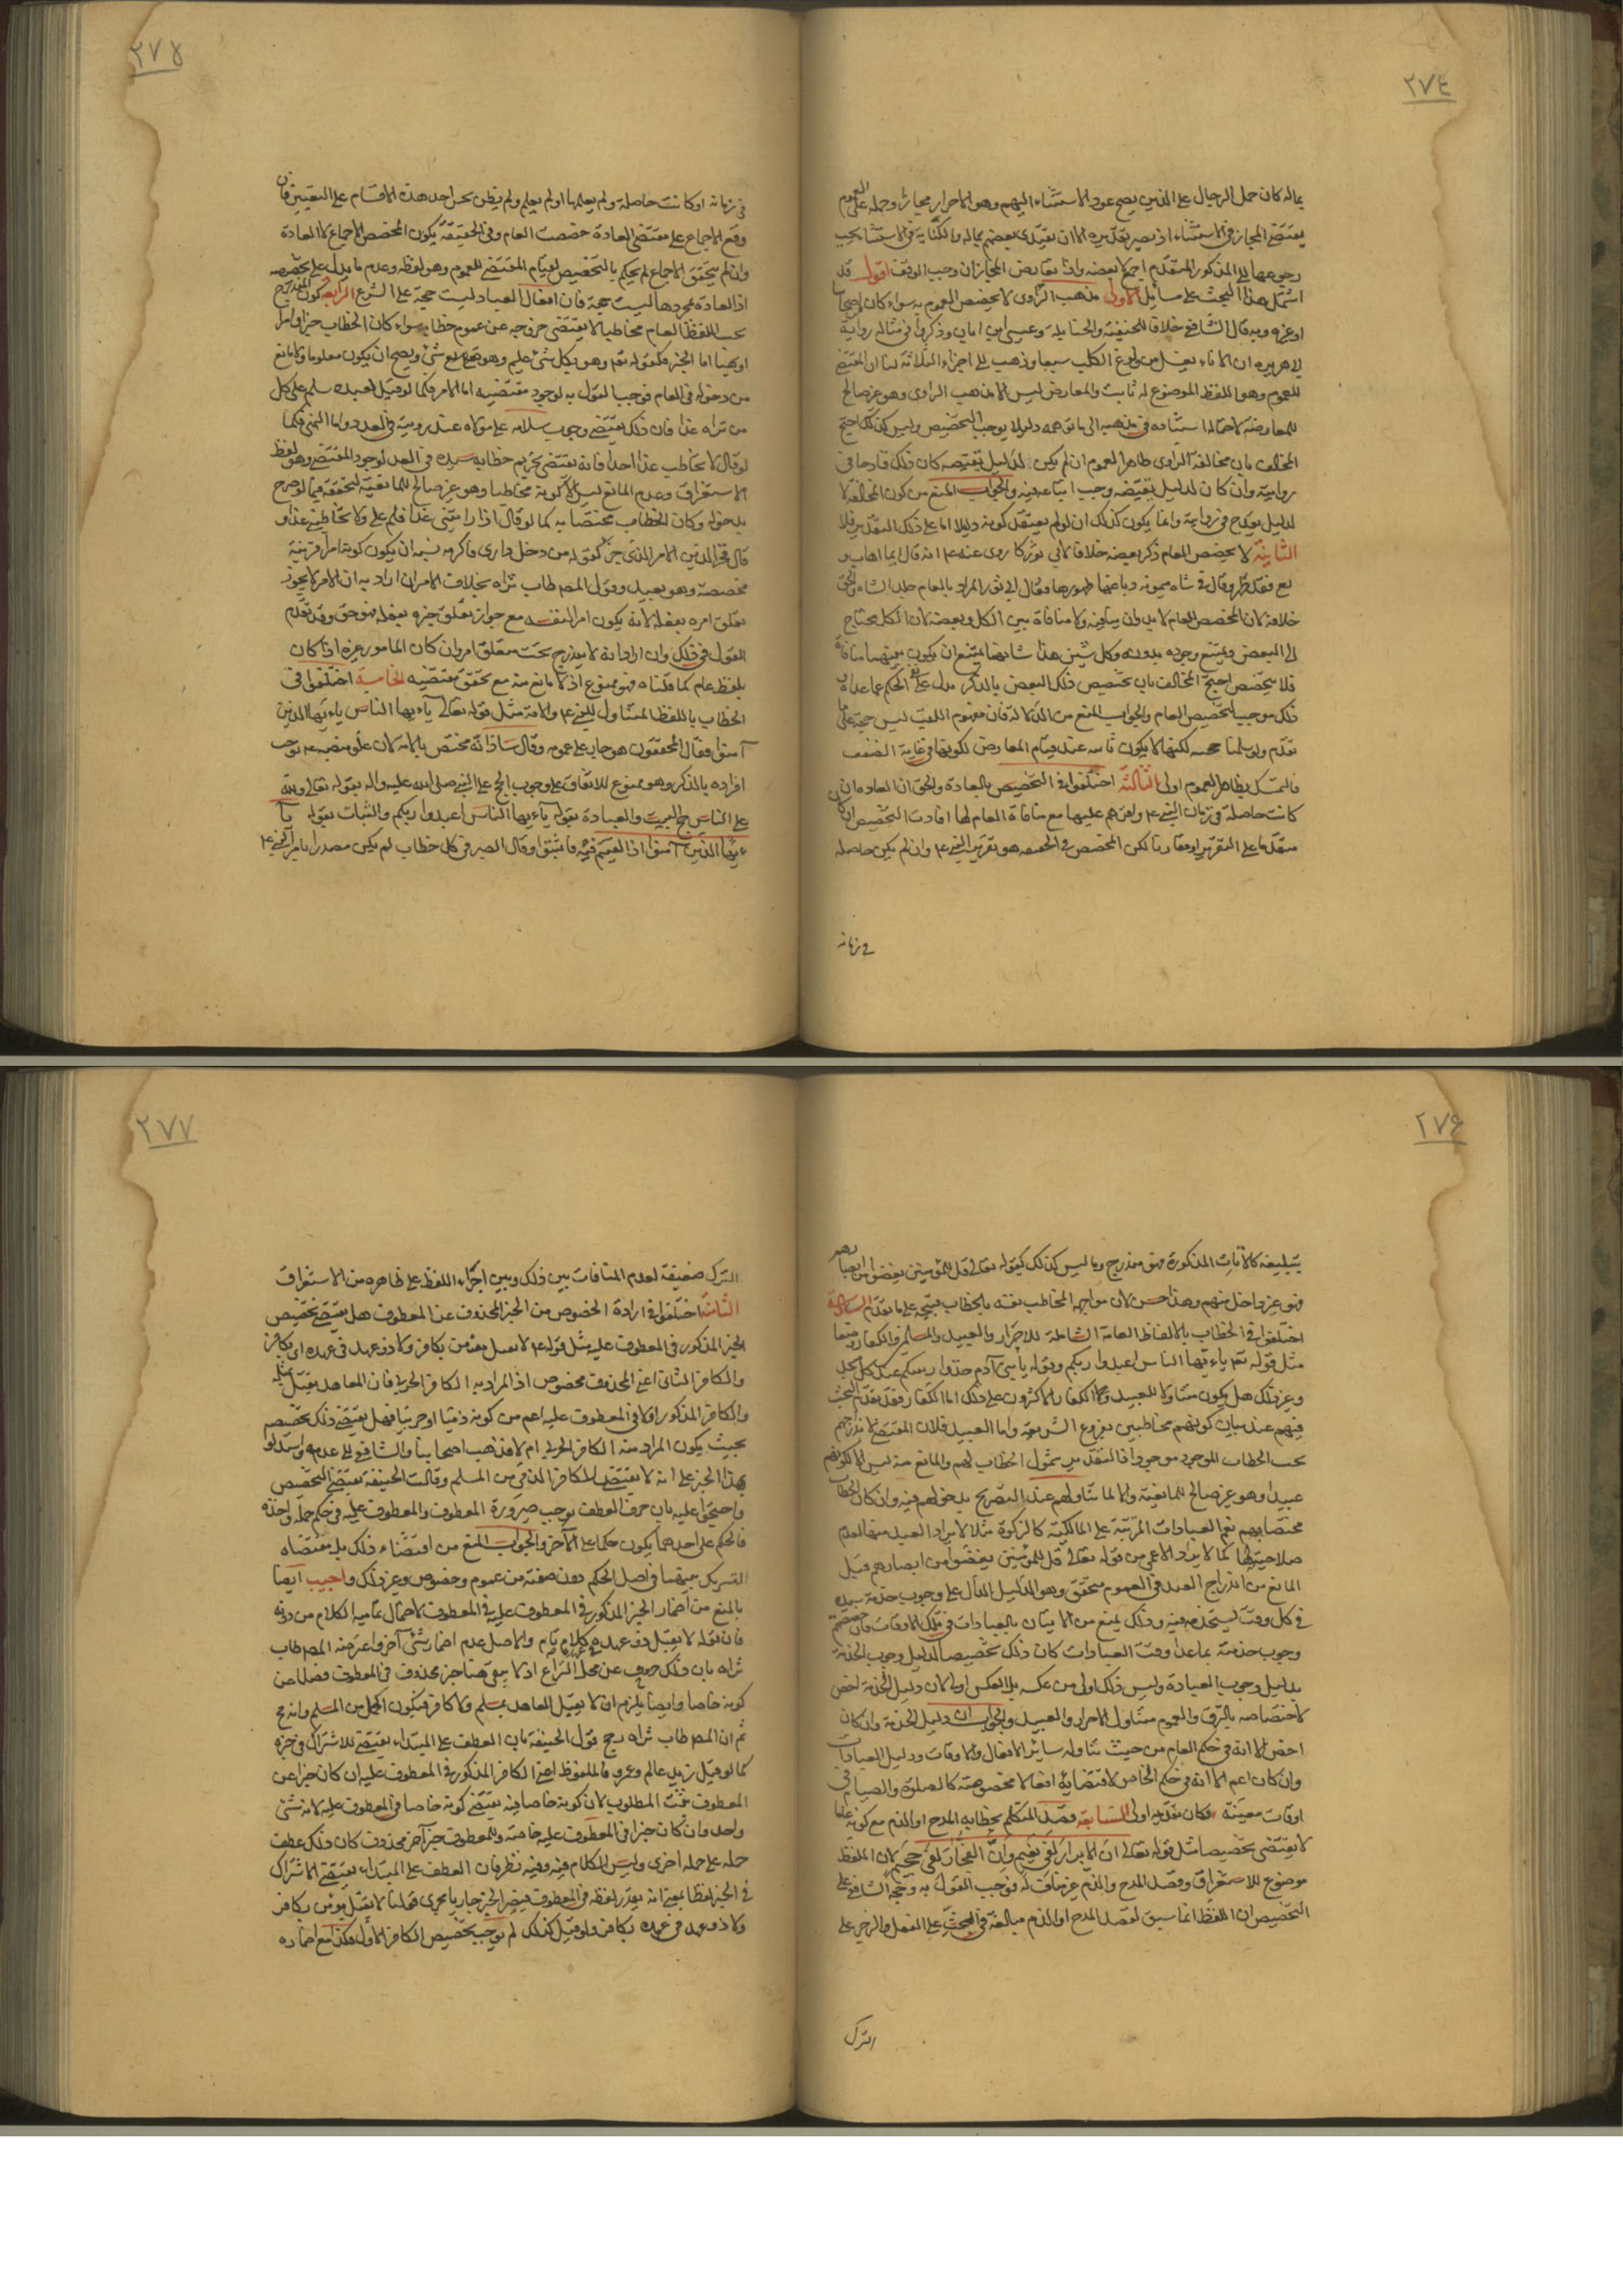 ٢٧٤
بماله كان حمل الرجال على الذين يصح عود الاستثناء اليهم وهو الاحرار مجازا وحمله على العموم
يقتضي المجاز في الاستثناء اذ يصير تقديره الا ان يفتدى بعضهم بماله والكناية في الاستثنا يجب
رجوعها الى المذكور المتقدم اجمع لا بعضه واذا تعارض المجازان وجب الوقف اقول قد
اشتمل هذا البحث على مسائل الاولى مذهب الراوى لا يخصص العموم به سواء كان الصحابى
او غيره وبه قال الشافعي خلافا للحنفية والحنابلة وعيسى ابن ابان وذكروا في مثاله رواية
ابى هريره ان الاناء يغسل من ولوغ الكلب سبعا وذهب الى اجزاء الثلاثة لنا ان المقتضي
للعموم وهو اللفظ الموضوع له ثابت والمعارض ليس الا مذهب الراوى وهو غير صالح
للمعارضة لاحتمال استناده في مذهبه الى ما توهمه دليلا يوجب التخصيص وليس كذلك احتج
المخالف بان مخالفة الراوى ظاهر العموم ان لم يكن لدليل يقتضيه كان ذلك قادحا في
روايته وان كان لدليل يقتضيه وجب اتباعه فيه والجواب المنع من كون المخالفة لا
لدليل يقدح في روايته وانما يكون كذلك ان لو لم يعتقد كونه دليلا اما على ذلك التقدير فلا
الثانية لا يخصص العام ذكر بعضه خلافا لابي ثور كما روى عنه ع انه قال ايما اهاب
دبغ فقد طهر وقال في شاه ميمونه دباغها طهورها فقال ابو ثور المراد بالعام جلد الشاه والحق
خلافه لان المخصص للعام لا بد وان ينافيه ولا منافاة بين الكل وبعضه لان الكل محتاج
الى البعض ويمتنع وجوده بدونه وكل شيئين هذا شانهما يمتنع ان يكون بينهما منافاة
فلا يخصص احتج المخالف بان تخصيص ذلك البعض بالذكر يدل على نفى الحكم عما عداه و
ذلك موجب لتخصيص العام والجواب المنع من الدلالة فان مفهوم اللقب ليس حجة على ما
تقدم ولو سلمنا حجيته لكنها لا يكون ثابته عند قيام المعارض لكونها في غاية الضعف
فالتمسك بظاهر العموم اولى الثالثة اختلفوا في التخصيص بالعادة والحق ان العاده ان
كانت حاصلة في زمان النبي ع واقرهم عليها مع منافاة العام لها افادت التخصيص ان كان
متقدما على التقرير او مقارنا لكن المخصص في الحقيقه هو تقرير النبي ع وان لم يكن حاصله
في زمانه
٢٧٥
في زمانه او كانت حاصلة ولم يعلمها او لم يعلم ولم يظن نحن احد هذه الاقسام على التعيين فان
وقع الاجماع على مقتضى العادة خصصت العام وفي الحقيقة يكون المخصص الاجماع لا العادة
وان لم يتحقق الاجماع لم يحكم بالتخصيص لقيام المقتضي للعموم وهو لفظه وعدم ما يدل على تخصيصه
اذ العادة بمجردها ليست حجة فان افعال العباد ليست حجة على الشرع الرابعة كون المندرج
تحت اللفظ العام مخاطبا لا يقتضى خروجه عن عموم خطابه سواء كان الخطاب خبرا او امرا
او نهيا اما الخبر فكقوله تعم وهو بكل شئ عليم وهو تعم شئ ويصح ان يكون معلوما ولا مانع
من دخوله في العام فوجب القول به لوجود مقتضيه اما الامر فكما لو قيل لعبده سلم على كل
من تراه غدا فان ذلك يقتضي وجوب سلامه على مولاه عند رويته في الغد واما النهى فكما
لو قال لا تخاطب غدا احدا فانه يقتضى تحريم خطابه سيده في الغد لوجود المقتضي وهو لفظ
الاستغراق وعدم المانع ليس الا كونه مخاطبا وهو غير صالح للمانعية لتحققه فيما لو صرح
بدخوله وكان الخطاب مختصا به كما لو قال اذا رايتنى غدا فسلم على ولا تخاطبنى غدا و
قال فخر الدين الامر الذى جزاء كقوله من دخل دارى فاكرمه يشبه ان يكون كونه امرا قرينة
مخصصة وهو بعيد وقول المصم طاب ثراه بخلاف الامر ان اراد به ان الامر لا يجوز
تعلق امره بفعله لانه يكون امرا لنفسه مع جواز تعلق خبره بفعله فهو حق وقد تقدم
القول في ذلك وان اراد انه لا يندرج تحت متعلق امره وان كان المامور غيره اذا كان
بلفظ عام كما قلناه فهو ممنوع اذ لا مانع منه مع تحقق مقتضيه الخامسة اختلفوا في
الخطاب باللفظ المتناول للنبي ع والامة مثل قوله تعالى يا ايها الناس يا ايها الذين
آمنوا فقال المحققون هو جار على عمومه وقال شاذ انه مختص بالامة لان علو منصبه ع يوجب
افراده بالذكر وهو ممنوع للاتفاق على وجوب الحج على النبي صلى الله عليه واله بقوله تعالى ولله
على الناس حج البيت والعبادة بقوله يا ايها الناس اعبدوا ربكم والثبات بقوله يا
ايها الذين آمنوا اذا لقيتم فئة فاثبتوا وقال الصيرفي كل خطاب لم يكن مصدرا بامر النبي ع
٢٧۶
بتبليغه كالآيات المذكورة فهو مندرج وما ليس كذلك كقوله تعالى قل للمؤمنين يغضوا من ابصارهم
فهو غير داخل فيهم وهذا حسن لان مواجهه المخاطب نفسه بالخطاب قبيحه على ما تقدم السادسة
اختلفوا في الخطاب بالالفاظ العامة الشاملة للاحرار والعبيد والمسلمين والكفار وضعا
مثل قوله تعم يا ايها الناس اعبدوا ربكم وقوله يا بنى آدم خذوا زينتكم عند كل مسجد
وغير ذلك هل يكون متناولا للعبيد وللكفار الاكثرون على ذلك اما الكفار فقد تقدم البحث
فيهم عند بيان كونهم مخاطبين بفروع الشريعة واما العبيد فلان المقتضي لاندراجهم
تحت الخطاب الموجود موجود اذ التقدير شمول الخطاب لهم والمانع منه ليس الا كونهم
عبيدا وهو غير صالح للمانعية والا لما تناولهم عند التصريح بدخولهم فيه وان كان الخطاب
مختصا بهم نعم العبادات المرتبة على المالكية كالزكوة مثلا لا يراد العبيد منها لعدم
صلاحيته لها كما لا يراد الاعمى من قوله تعالى قل للمؤمنين يغضوا من ابصارهم قيل
المانع من اندراج العبد في العموم متحقق وهو الدليل الدال على وجوب خدمة سيده
في كل وقت يستخدمه فيه وذلك يمنع من الاتيان بالعبادات في تلك الاوقات فان خصصتم
وجوب خدمته بما عدا وقت العبادات كان ذلك تخصيصا لدليل وجوب الخدمة
بدليل وجوب العبادة وليس ذلك اولى من عكسه بل العكس اولى لان دليل الخدمة اخص
لاختصاصه بالرق والعموم متناول الاحرار والعبيد والجواب ان دليل الخدمة وان كان
اخص الا انه في حكم العام من حيث تناوله سائر الافعال والاوقات ودليل العبادات
وان كان اعم الا انه في حكم الخاص لاقتضائه افعالا مخصوصة كالصلوة والصيام في
اوقات معينة فكان تقديمه اولى السابعة قصد المتكلم بخطابه المدح او الذم مع كونه عاما
لا يقتضى تخصيصا مثل قوله تعالى ان الابرار لفي نعيم وان الفجار لفي جحيم لان اللفظ
موضوع للاستغراق وقصد المدح والذم غير مناف له فوجب القول به وحجة الشافعي على
التخصيص ان اللفظ انما سيق لقصد المدح او الذم مبالغة في الحث على الفعل والزجر على
الترك
٢٧٧
الترك ضعيفة لعدم المنافات بين ذلك وبين اجراء اللفظ على ظاهره من الاستغراق
الثامنة اختلفوا في ارادة الخصوص من الخبر المحذوف عن المعطوف هل يقتضي تخصيص
الخبر المذكور في المعطوف عليه مثل قوله ع لا يقتل مؤمن بكافر ولا ذو عهد في عهده اى بكافر
والكافر الثانى اعنى المحذوف مخصوص اذ المراد به الكافر الحربى فان المعاهد يقتل بمثله
والكافر المذكور اولا في المعطوف عليه اعم من كونه ذميا او حربيا فهل يقتضي ذلك تخصيصه
بحيث يكون المراد منه الكافر الحربى ام لا فذهب اصحابنا والشافعي الى عدمه واستدلوا
بهذا الخبر على انه لا يقتضي للكافر الذمي من المسلم وقالت الحنيفة يقتضي التخصيص
واحتجوا عليه بان حرف العطف يوجب صيرورة المعطوف والمعطوف عليه في حكم جملة واحدة
فالحكم على احدهما يكون حكما على الآخر والجواب المنع من اقتضاء ذلك بل مقتضاه
التشريك بينهما في اصل الحكم دون صفته من عموم وخصوص وغير ذلك واجيب ايضا
بالمنع من اضمار الخبر المذكور في المعطوف عليه في المعطوف لاحتمال تمامية الكلام من دونه
فان قوله لا يقتل ذو عهد في عهده كلام تام والاصل عدم اضمار شئ آخر واعترضه المصم طاب
ثراه بان ذلك خروج عن محل النزاع اذ لا يبقى هنا خبر محذوف في المعطوف فضلا عن
كونه خاصا وايضا يلزم ان لا يقتل المعاهد بمسلم ولا كافر فيكون اكمل من المسلم وانه مح
ثم ان المصم طاب ثراه رجح قول الحنيفة بان العطف على المبتداء يقتضي للاشتراك في خبره
كما لو قيل زيد عالم وعمرو فالملفوظ اعنى الكافر المذكور في المعطوف عليه ان كان خبرا عن
المعطوف ثبت المطلوب لان كونه خاصا فيه يقتضي كونه خاصا في المعطوف عليه لانه شئ
واحد وان كان خبرا في المعطوف عليه خاصة وللمعطوف خبر آخر محذوف كان ذلك عطف
جملة على جملة اخرى وليس الكلام فيه وفيه نظر فان العطف على المبتداء يقتضي الاشتراك
في الخبر لفظا بمعنى انه يقدر لفظه في المعطوف فيصير الخبر جاريا مجرى قولنا لا يقتل مؤمن بكافر
ولا ذو عهد في عهده بكافر ولو قيل كذلك لم يوجب تخصيص الكافر الاول فكذا مع اضماره